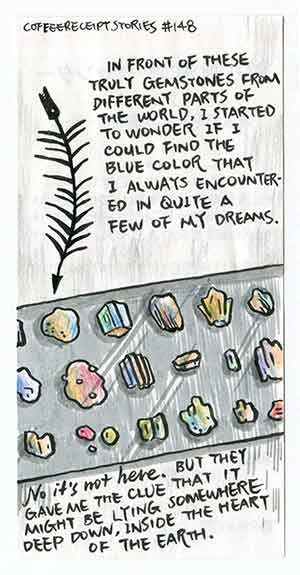 COFFEERECEIPTSTORIES #148
IN FRONT OF THESE
TRULY GEMSTONES FROM
DIFFERENT PARTS OF
THE WORLD, I STARTED
TO WONDER IF I
COULD FIND THE
BLUE COLOR THAT
I ALWAYS ENCOUNTER-
ED IN QUITE A
FEW OF MY DREAMS.
No it's not here. BUT THEY
GAVE ME THE CLUE THAT IT
MIGHT BE LYING SOMEWHERE
DEEP DOWN, INSIDE THE HEART
OF THE EARTH.